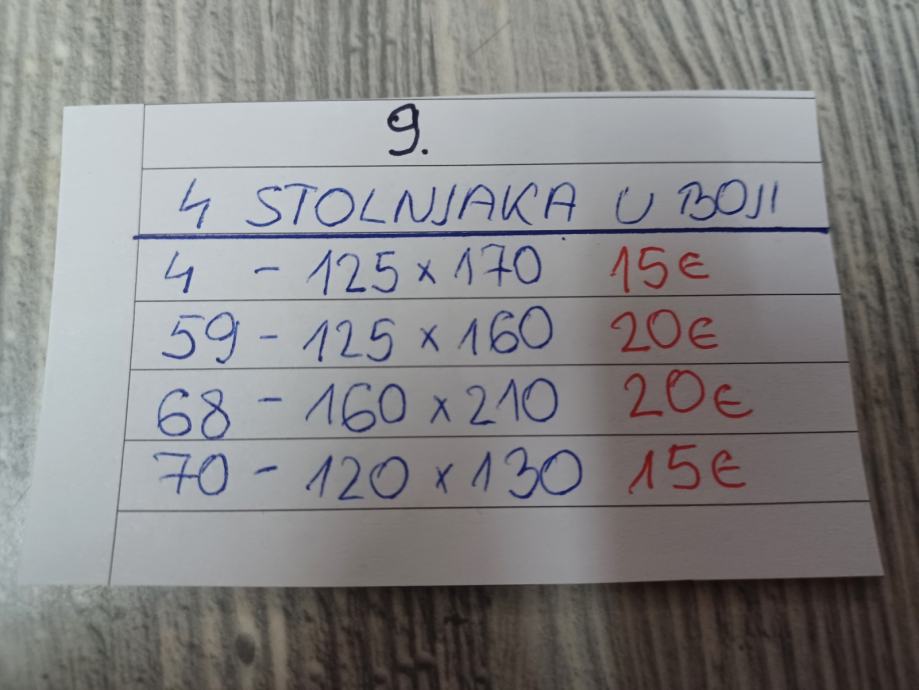 9.
4 STOLNJAKA U BOJI
4 - 125 x 170 15€
59 - 125 x 160 20€
68 - 160 x 210 20€
70 - 120 x 130 15€